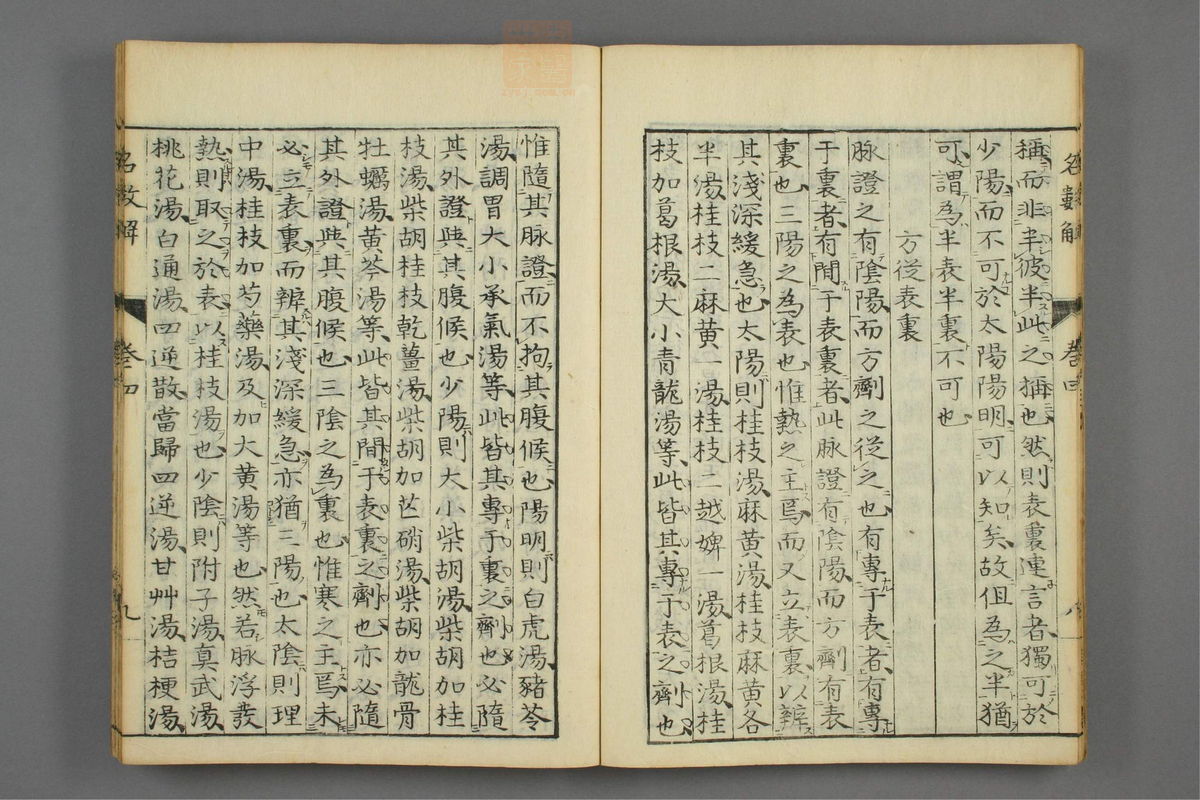 稱而非半彼半此之稱也然則表裏連言者獨可於
少陽而不可於太陽陽明可以知矣故但為之半猶
可謂為半表半裏不可也
方從表裏
脉證之有陰陽而方劑之從之也有專于表者有專
于裏者有間于表裏者此脉證有陰陽而方劑有表
裏也三陽之為表也惟熱之主焉而又立表裏以辨
其淺深緩急也太陽則桂枝湯麻黄湯桂枝麻黄各
半湯桂枝二麻黄一湯桂枝二越婢一湯葛根湯桂
枝加葛根湯大小青龍湯等此皆其專于表之劑也
惟隨其脉證而不拘其腹候也陽明則白虎湯豬苓
湯調胃大小承氣湯等此皆其專于裏之劑也必隨
其外證與其腹候也少陽則大小柴胡湯柴胡加桂
枝湯柴胡桂枝乾薑湯柴胡加芒硝湯柴胡加龍骨
牡蠣湯黄芩湯等此皆其間于表裏之劑也亦必隨
其外證與其腹候也三陰之為裏也惟寒之主焉未
必立表裏而辨其淺深緩急亦猶三陽也太陰則理
中湯桂枝加芍藥湯及加大黄湯等也然若脉浮發
熱則取之於表以桂枝湯也少陰則附子湯真武湯
桃花湯白通湯四逆散當歸四逆湯甘艸湯桔梗湯
名數解 卷四 八
名数解 卷四 九